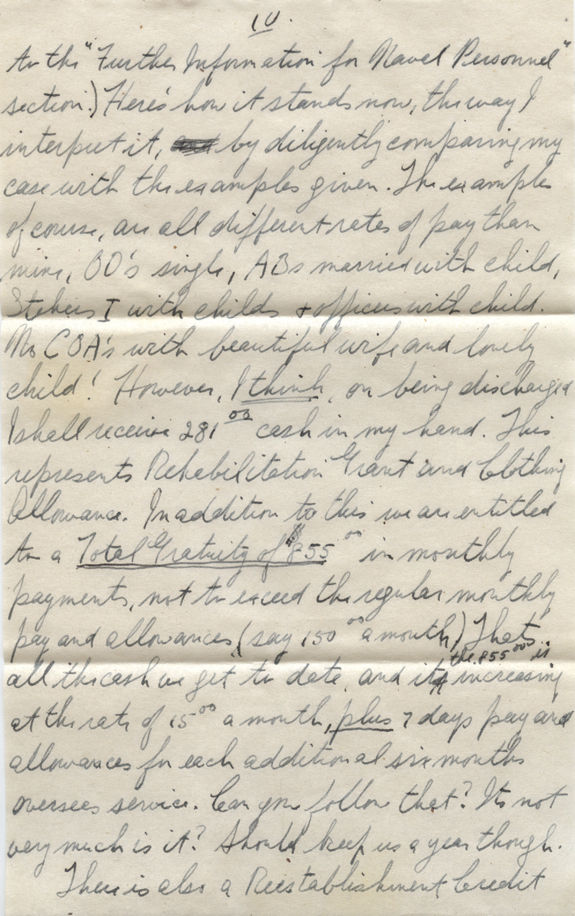 10.
to the "Further Information for Naval Personnel"
section) Here's how it stands now, the way I
interpret it, by diligently comparing my
case with the examples given. The examples
of course, are all different rates of pay than
mine, OD's single, ABs married with child,
Stokers I with childs & officers with child.
No COA's with beautiful wife and lovely
child! However, I think, on being discharged
I shall receive 281 00 cash in my hand. This
represents Rehabilitation Grant and Clothing
Allowance. In addition to this we are entitled
to a Total Gratuity of $855 00 in monthly
payments, not to exceed the regular monthly
pay and allowances (say 150 00 a month) That's
all the cash we get to date, and the 855 00 is increasing
at the rate of 15 00 a month, plus 7 days pay and
allowances for each additional six months
oversees service. Can you follow that? Its not
very much is it? Should keep us a year though.
There is also a Reestablishment Credit